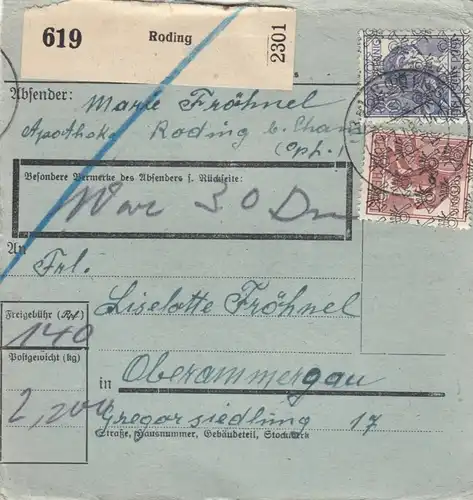 619 Roding 2301
Absender: Marie Fröhnel
Apotheke Roding b. Cham
(Oph.)
Besondere Vermerke des Absenders s. Rückseite:
War 30 Dm
An
Frl.
Liselotte Fröhnel
Freigebühr (Rpf.)
140
Postgewicht (kg)
2,200
in Oberammergau
Gregorsiedlung 17
Straße, Hausnummer, Gebäudeteil, Stockwerk